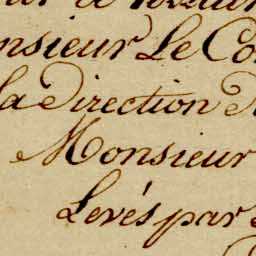 nsieur Le Co
la Direction d
Monsieur
Levés par